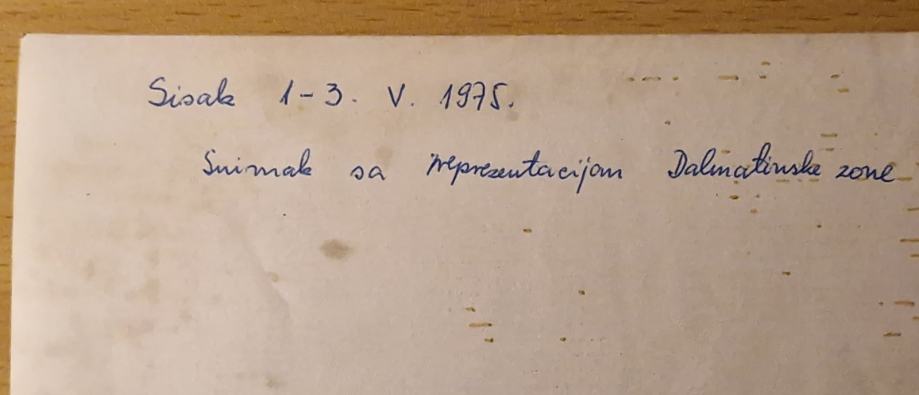 Sisak 1-3. V. 1975.
Snimak sa reprezentacijom Dalmatinske zone